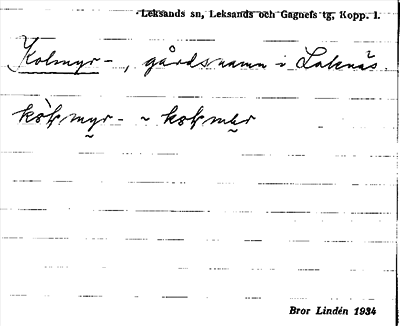 Leksands sn, Leksands och Gagnefs tg, Kopp. l.
Kolmyr-, gårdsnamn i Laknäs.
Bror Lindén 1934